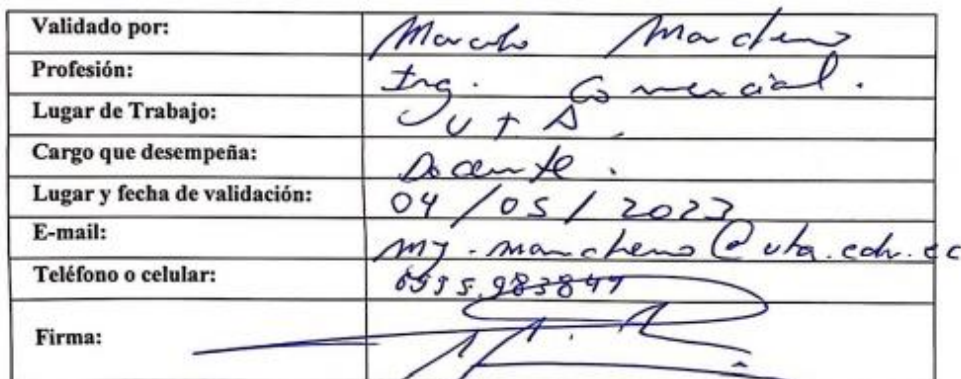 Validado por: Marcelo Mancheno
Profesión: Ing. Comercial.
Lugar de Trabajo: UTA
Cargo que desempeña: Docente.
Lugar y fecha de validación: 04/05/2023
E-mail: my.mancheno@uta.edu.ec
Teléfono o celular:
Firma: